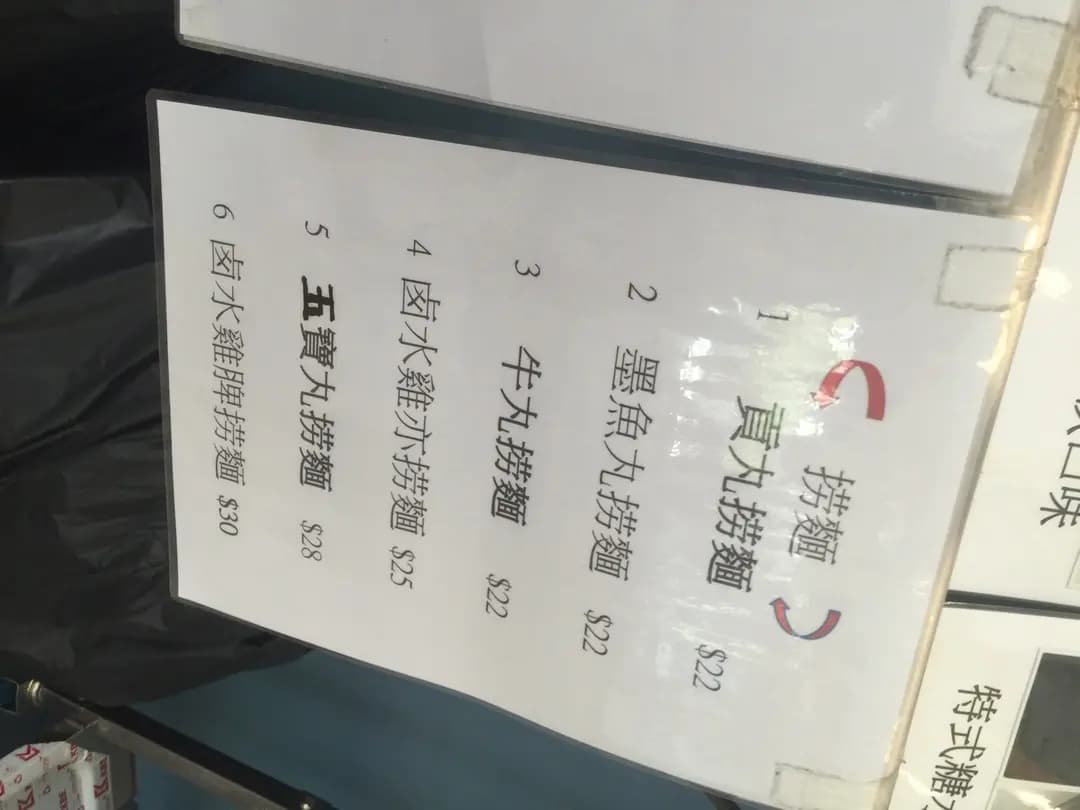 捞麵
1 貢丸捞麵 $22
2 墨魚丸捞麵 $22
3 牛丸捞麵 $22
4 鹵水雞亦捞麵 $25
5 五寶丸捞麵 $28
6 鹵水雞脾捞麵 $30
味
特式糖